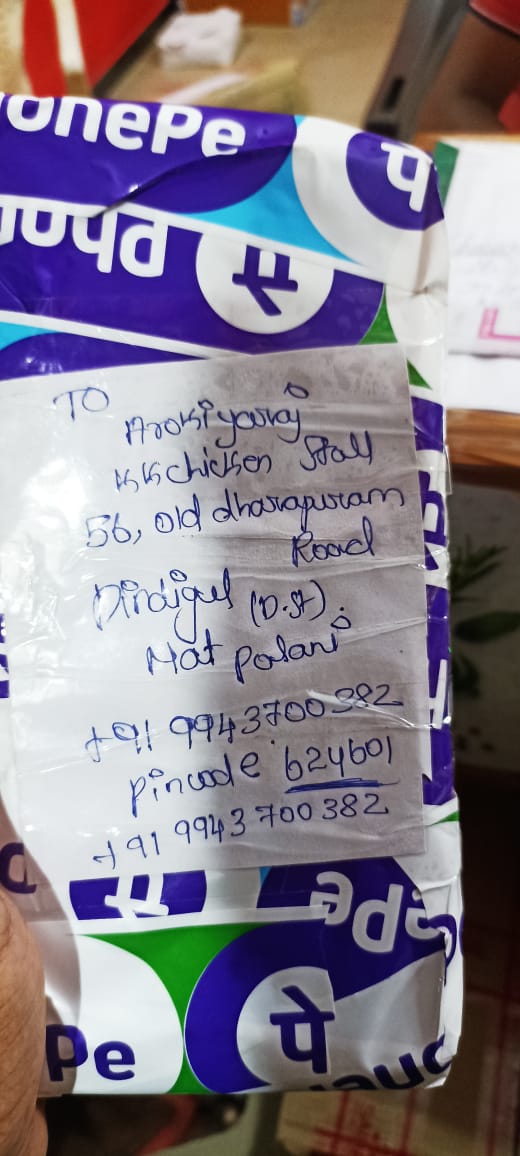 onePe
पे
TO
Arokiyaraj
KK chicken Stall
56, old dharapuram
Road
Dindigul (D.st).
Nat palani
+91 9943700382
pincode 624601
+91 9943 700 382
Pe
पे